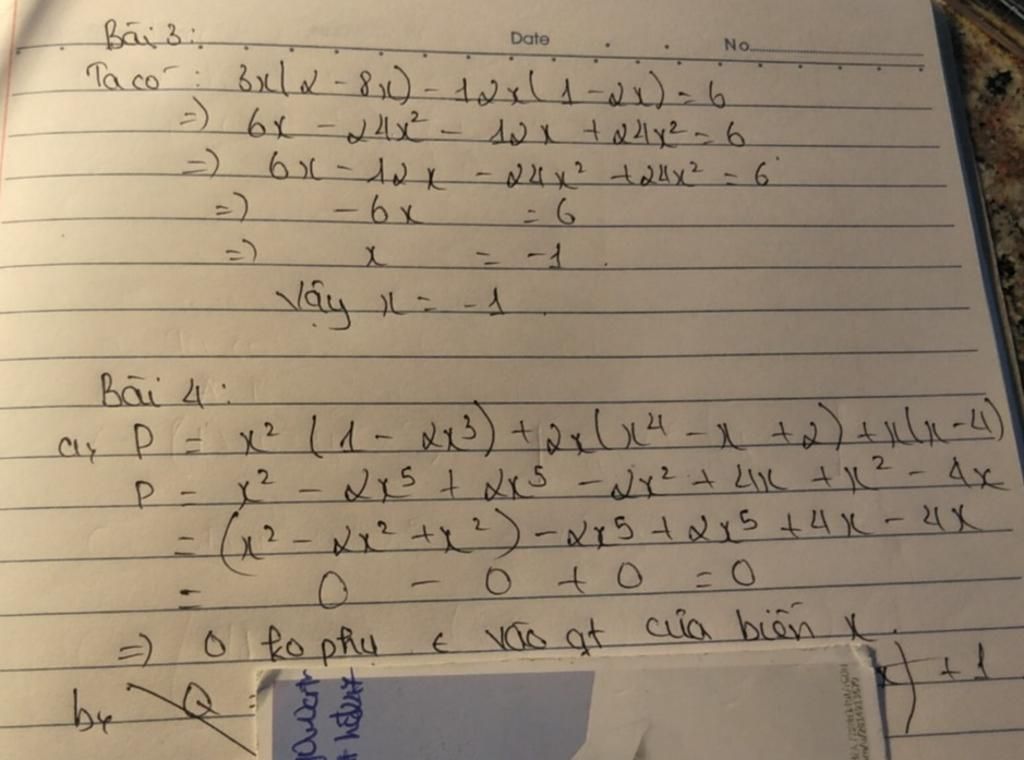 Date No
Bài 3:
Ta có: 3x(2 - 8x) - 12x(1 - 2x) = 6
=) 6x - 24x² - 12x + 24x² = 6
=) 6x - 12x - 24x² + 24x² = 6
=) - 6x = 6
=) x = -1.
Vậy x = -1.
Bài 4:
a, P = x² (1 - 2x³) + 2x(x⁴ - x + 2) + x(x-4)
P = x² - 2x⁵ + 2x⁵ - 2x² + 4x + x² - 4x
= (x² - 2x² + x²) - 2x⁵ + 2x⁵ + 4x - 4x
= 0 - 0 + 0 = 0
=) 0 ko phụ ϵ vào gt của biến x.
b, Q = x) + 1